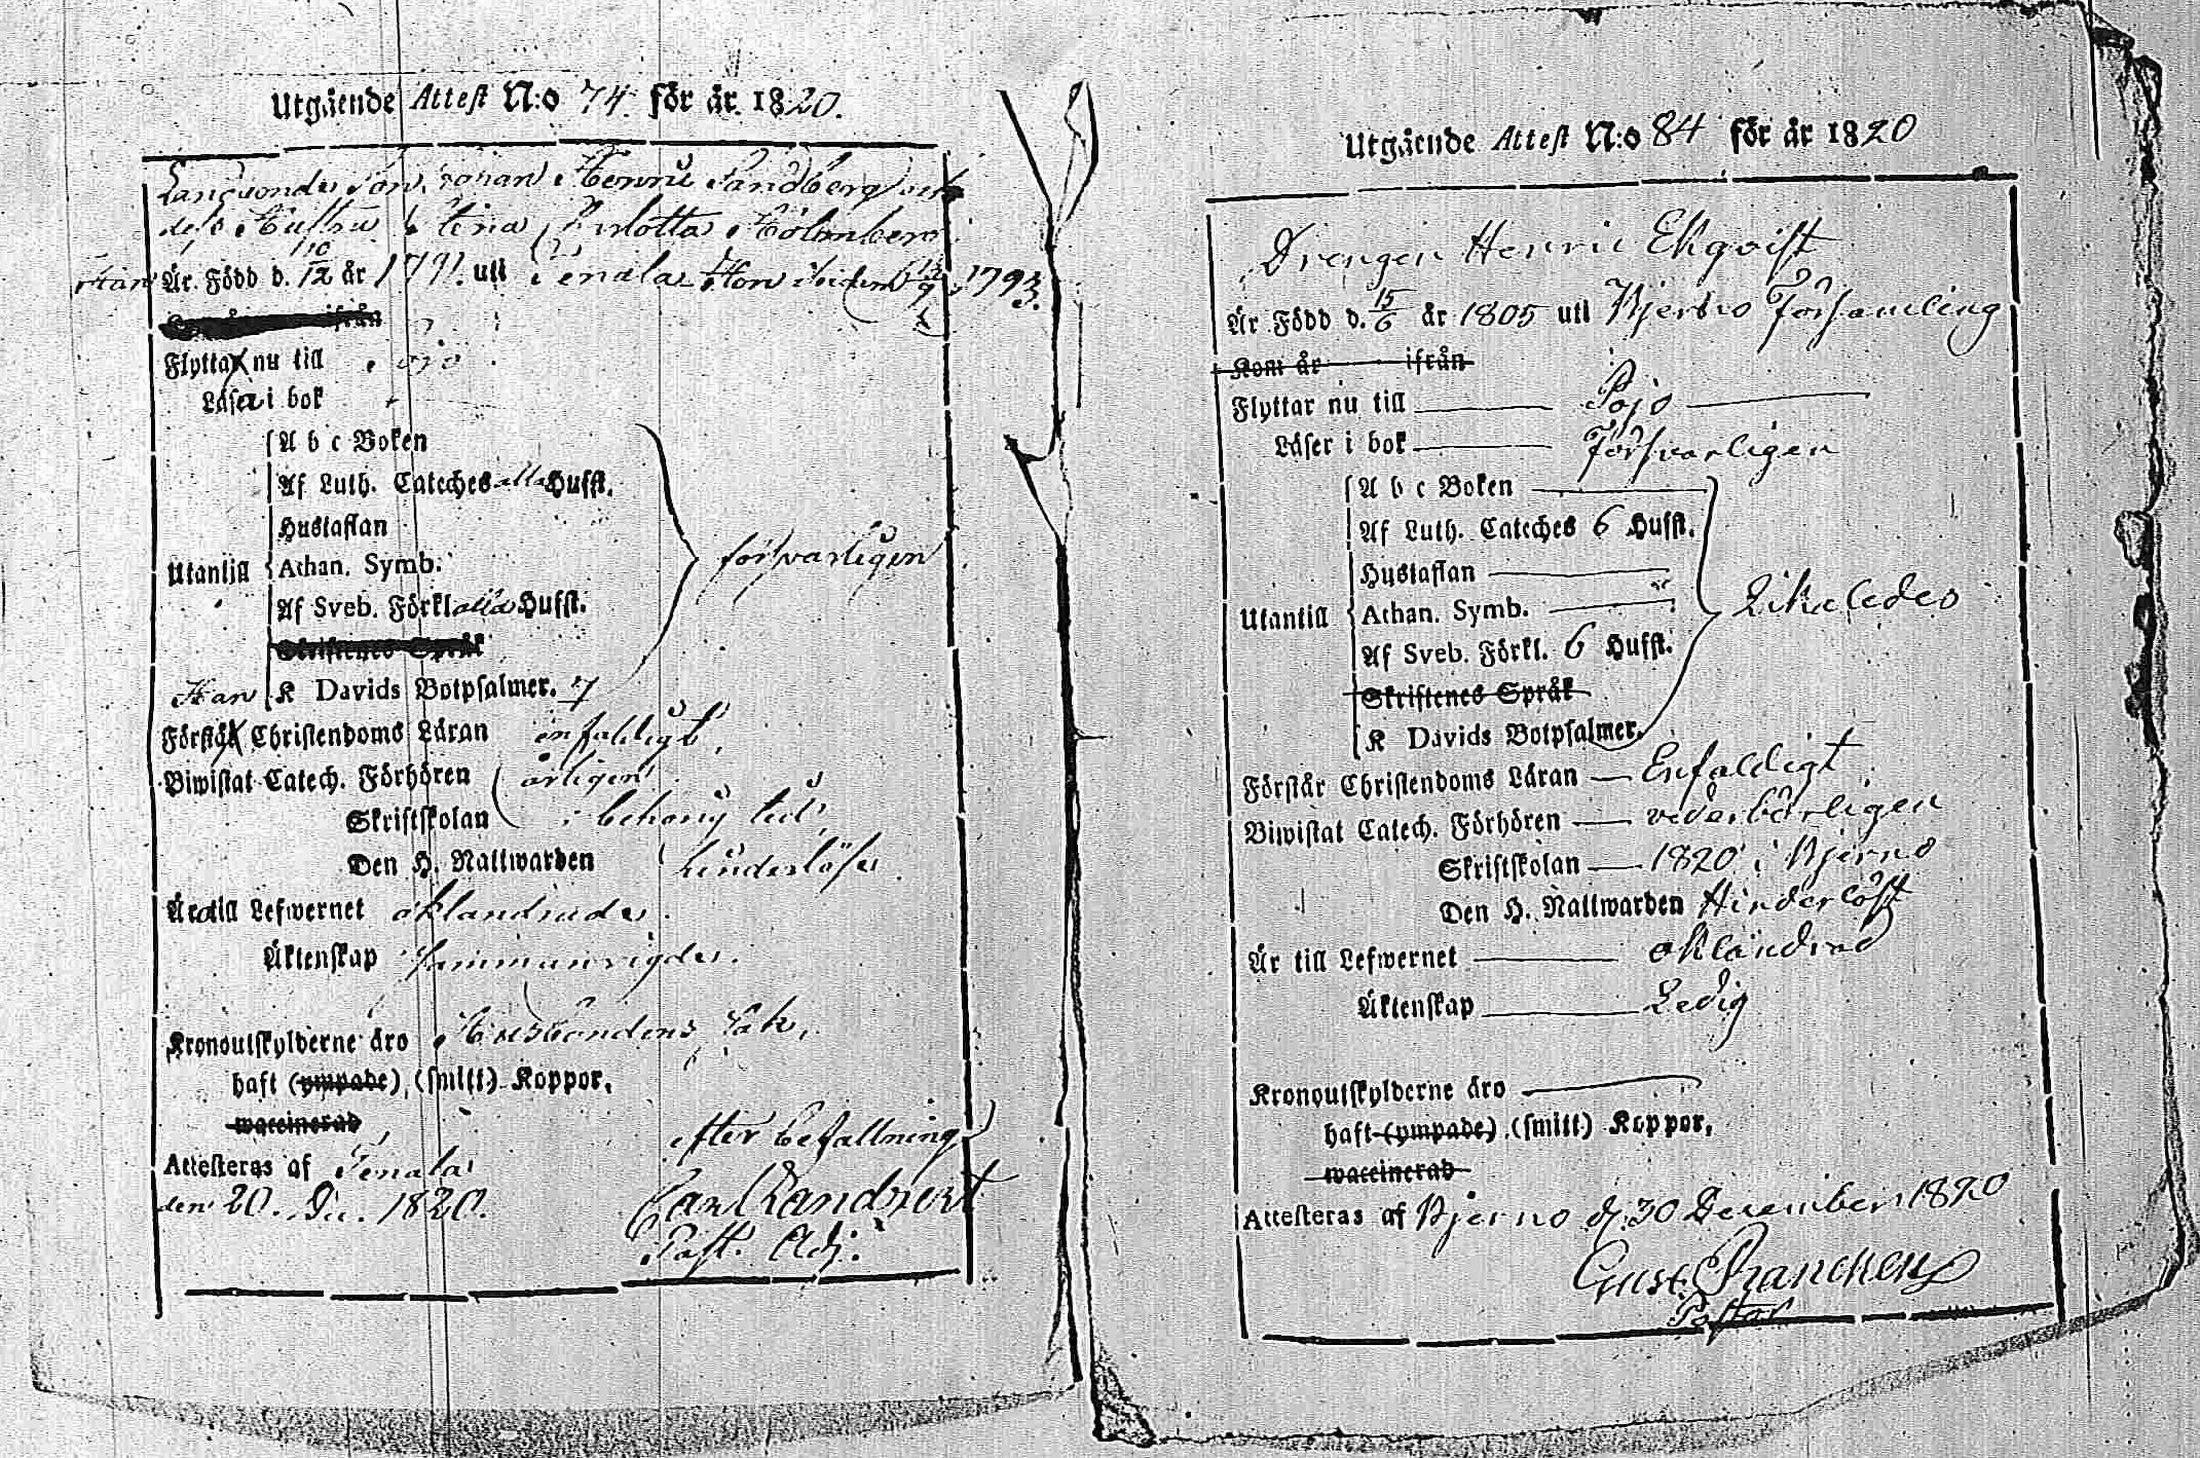 Utgående Attest N:o 74. för år 1820.
Son Johan Henric Sandberg
dess Hustru Stina Lovlotta Holmberg
Är Född d. 10/12 år 1791. uti Tenala Hon ibidem d 13/9 1793.
ifrån
Flytta nu till Pojo
Läsa i bok
A b c Boken
Af Luth. Cateches alla Hufst.
Hustaflan
Utantill Athan. Symb.
försvarligen
Af Sveb. Förkl alla Hufst.
Skriftenes Språk
Han K Davids Botpsalmer. 7
Förstå Christendoms Läran enfaldigt.
Biwistat Catech. Förhören årligen
Skriftskolan i behörig tid
Den H. Nattwarden hinderlöse.
Äro till Lefwernet oklandrade.
Äktenskap Sammanvigde.
Kronoutskylderne äro Husbondens Sak.
haft (ympade), (smitt) Koppor,
waccinerad
efter befallning
Attesteras af Tenala
den 20. Dec. 1820.
Carl
Past. Adj.
Utgående Attest N:o 84 för år 1820
Drengen Henric Ekqvist
Är Född d. 15/6 år 1805 uti Bjerno Församling
Kom år ifrån
Flyttar nu till Pojo
Läser i bok Försvarligen
A b c Boken
Af Luth. Cateches 6 Hufst.
Hustaflan
Utantill Athan. Symb.
Likaledes
Af Sveb. Förkl. 6 Hufst.
Skriftenes Språk
K Davids Botpsalmer.
Förstår Christendoms Läran Enfaldigt
Biwistat Catech. Förhören vederbörligen
Skriftskolan 1820 i Bjerno
Den H. Nattwarden Hinderlöst
Är till Lefwernet oklandrad
Äktenskap Ledig
Kronoutskylderne äro
haft (ympade), (smitt) Koppor,
waccinerad
Attesteras af Bjerno d. 30 December 1820
Gust. Francken
Pastor